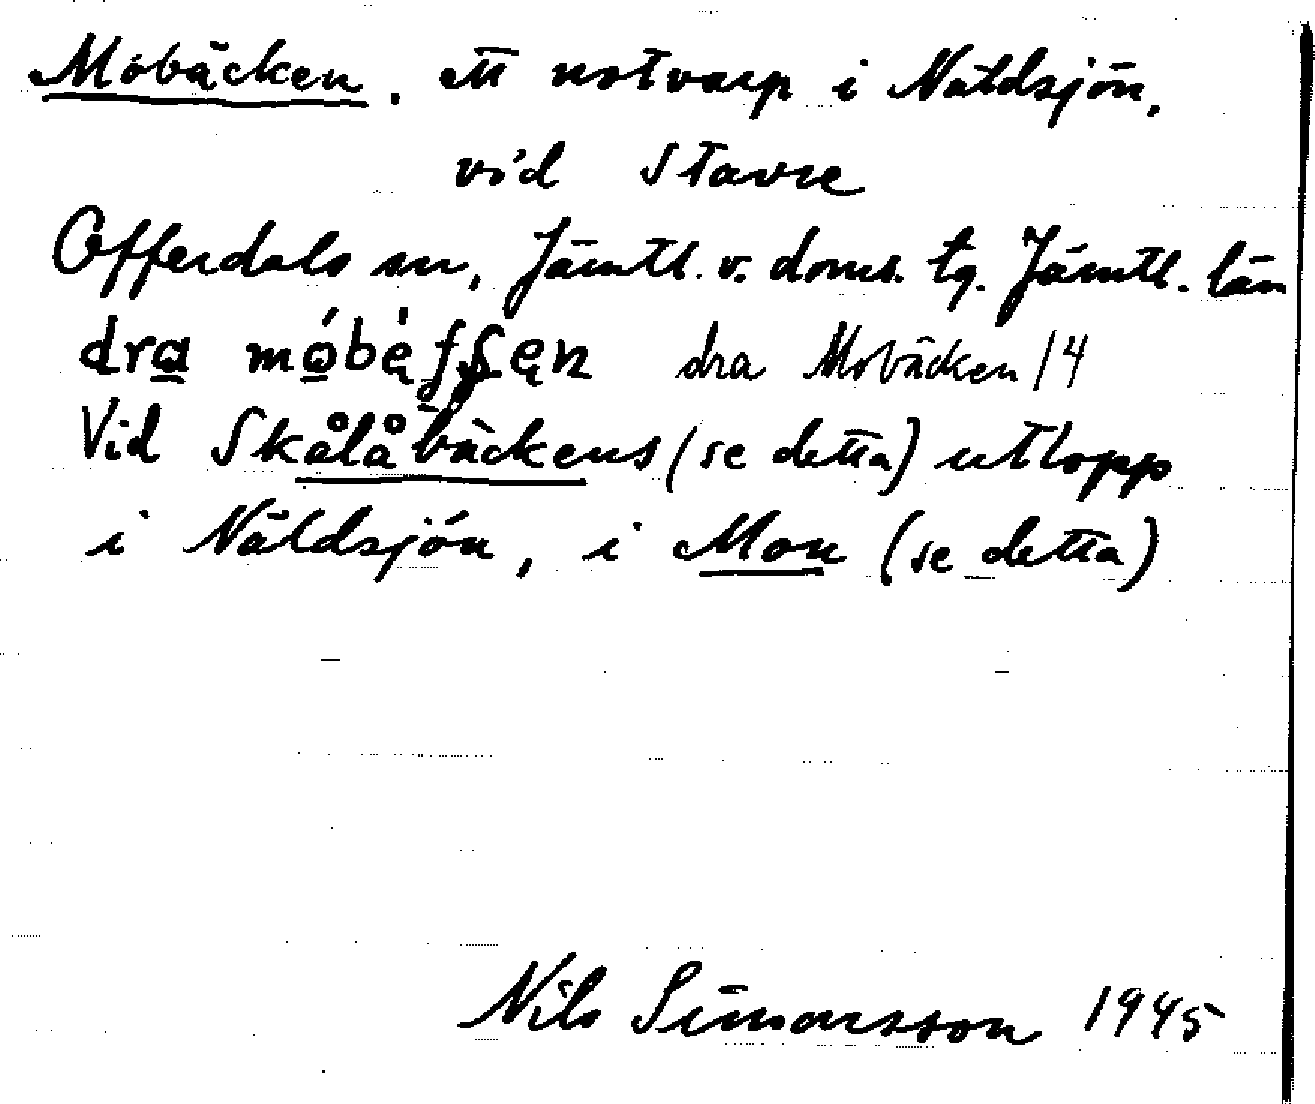 Mobäcken. ett notvarp i Näldsjön,
vid Stavre
Offerdals sn, Jämtl. v. doms. tg. Jämtl. län
dra dra Mobäcken /4
Vid Skålåbäckens (se detta) utlopp
i Näldsjön, i Mon (se detta)
Nils Simonsson 1945